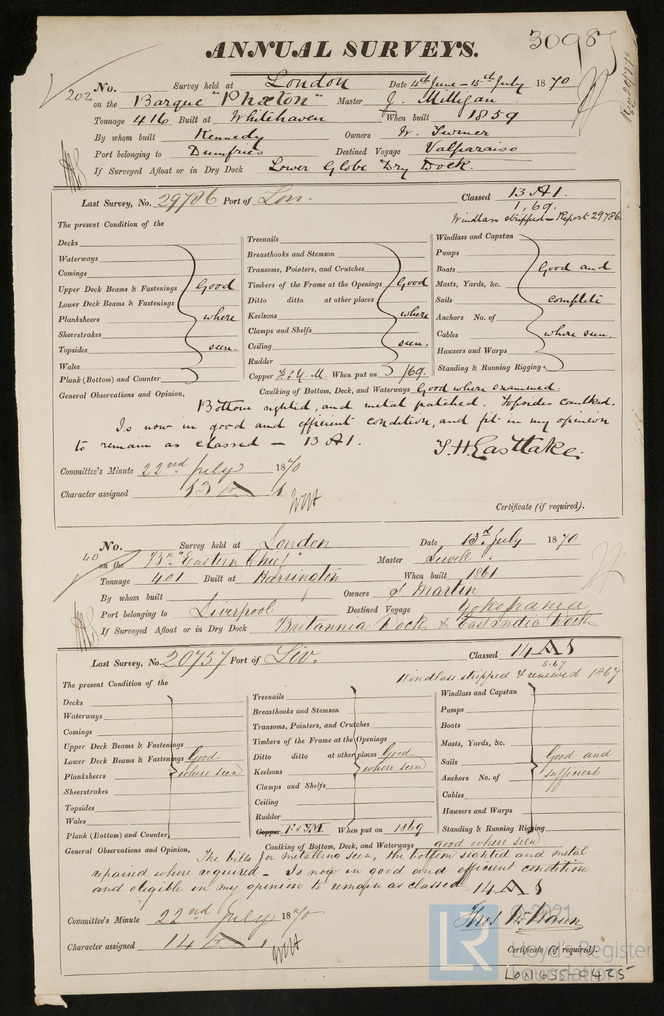 ANNUAL SURVEYS.
30987
202 No. Survey held at London Date 4th June - 15th July 1870
on the Barque "Phæton" Master J. Milligan
Tonnage 416 Built at Whitehaven When built 1859
By whom built Kennedy Owners W. Turner
Port belonging to Dumfries Destined Voyage Valparaiso
If Surveyed Afloat or in Dry Dock Lower Globe Dry Dock.
Last Survey, No. 29786 Port of Lon. Classed 13 A 1.
1,69.
Windlass stripped - Report 29786
The present Condition of the
Decks
Waterways
Comings
Upper Deck Beams & Fastenings Good
Lower Deck Beams & Fastenings
Planksheers where
Sheerstrakes
Topsides seen.
Wales
Plank (Bottom) and Counter
Treenails
Breasthooks and Stemson
Transoms, Pointers, and Crutches
Timbers of the Frame at the Openings Good
Ditto ditto at other places
Keelsons where
Clamps and Shelfs
Ceiling seen.
Rudder
Copper F & Y. M. When put on 3/69.
Windlass and Capstan
Pumps
Boats Good and
Masts, Yards, &c.
Sails complete
Anchors No. of
Cables where seen.
Hawsers and Warps
Standing & Running Rigging
General Observations and Opinion, Caulking of Bottom, Deck, and Waterways Good where examined.
Bottom sighted, and metal patched. Topsides caulked.
Is now in good and efficient condition, and fit in my opinion
to remain as classed - 13 A 1.
T. H. Eastlake.
Committee's Minute 22nd July 1870
Character assigned 13 A 1
Certificate (if required).
40 No. Survey held at London Date 13th July 1870
on the Bk "Eastern Chief" Master Sewell
Tonnage 401 Built at Harrington When built 1861
By whom built Owners J Martin
Port belonging to Liverpool Destined Voyage Yokohama
If Surveyed Afloat or in Dry Dock Britannia Dock & East India Dock
Last Survey, No. 20757 Port of Liv. Classed 14 A 1
5.67
Windlass stripped & renewed 1867
The present Condition of the
Decks
Waterways
Comings
Upper Deck Beams & Fastenings
Lower Deck Beams & Fastenings Good
Planksheers where seen
Sheerstrakes
Topsides
Wales
Plank (Bottom) and Counter
Treenails
Breasthooks and Stemson
Transoms, Pointers, and Crutches
Timbers of the Frame at the Openings
Ditto ditto at other places Good
Keelsons where seen
Clamps and Shelfs
Ceiling
Rudder
Copper F & YM When put on 1869
Windlass and Capstan
Pumps
Boats
Masts, Yards, &c.
Sails Good and
Anchors No. of sufficient
Cables
Hawsers and Warps
Standing & Running Rigging
General Observations and Opinion, Caulking of Bottom, Deck, and Waterways good where seen
The bills for metalling seen, the bottom sighted and metal
repaired where required - Is now in good and efficient condition
and eligible in my opinion to remain as classed 14 A 1
Committee's Minute 22nd July 1870
Character assigned 14 A 1
Certificate (if required).
LR © 2021
Lloyd's Register
Foundation
LON 655-0425